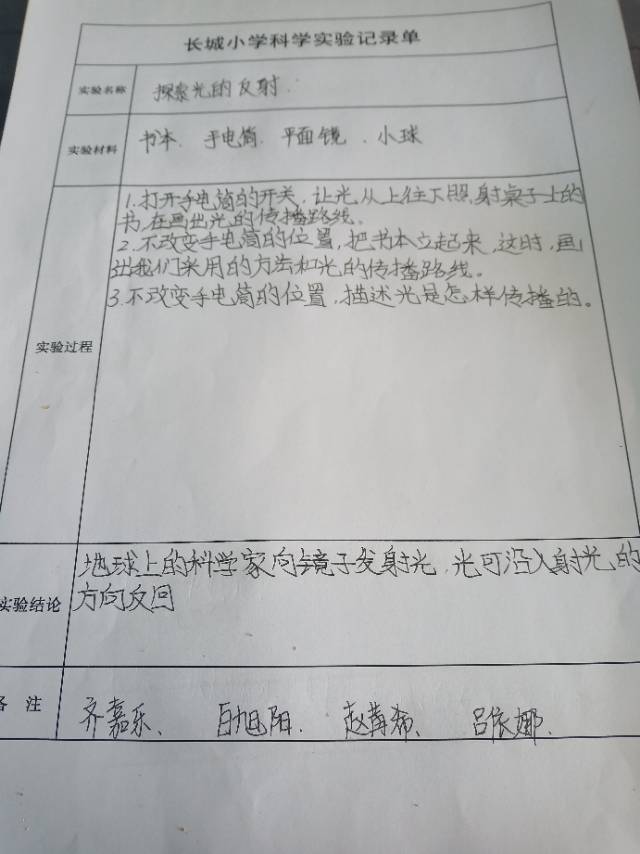 长城小学科学实验记录单
实验名称 探索光的反射.
实验材料 书本、手电筒、平面镜、小球
实验过程
1.打开手电筒的开关,让光从上往下照,射桌子上的
书,在画出光的传播路线。
2.不改变手电筒的位置,把书本立起来,这时,画
出我们采用的方法和光的传播路线。
3.不改变手电筒的位置,描述光是怎样传播的。
实验结论
地球上的科学家向镜子发射光,光可沿入射光的
方向反回
备 注 齐嘉乐、 白旭阳、 赵苒希、 吕依娜.